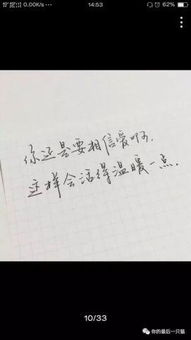 0.00K/s 14:53 62%
你还是要相信爱呀.
这样会活得温暖一点.
10/33
你的最后一只猫